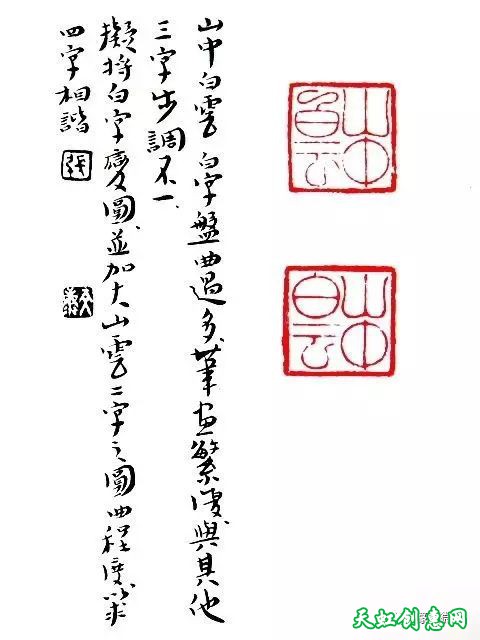 山中白雲 白字盤曲過多筆畫繁複與其他
三字步調不一、
擬將白字變圓、並加大山雲二字之圓曲程度以求
四字相諧 張
山中白云
山中白云
天虹创意网